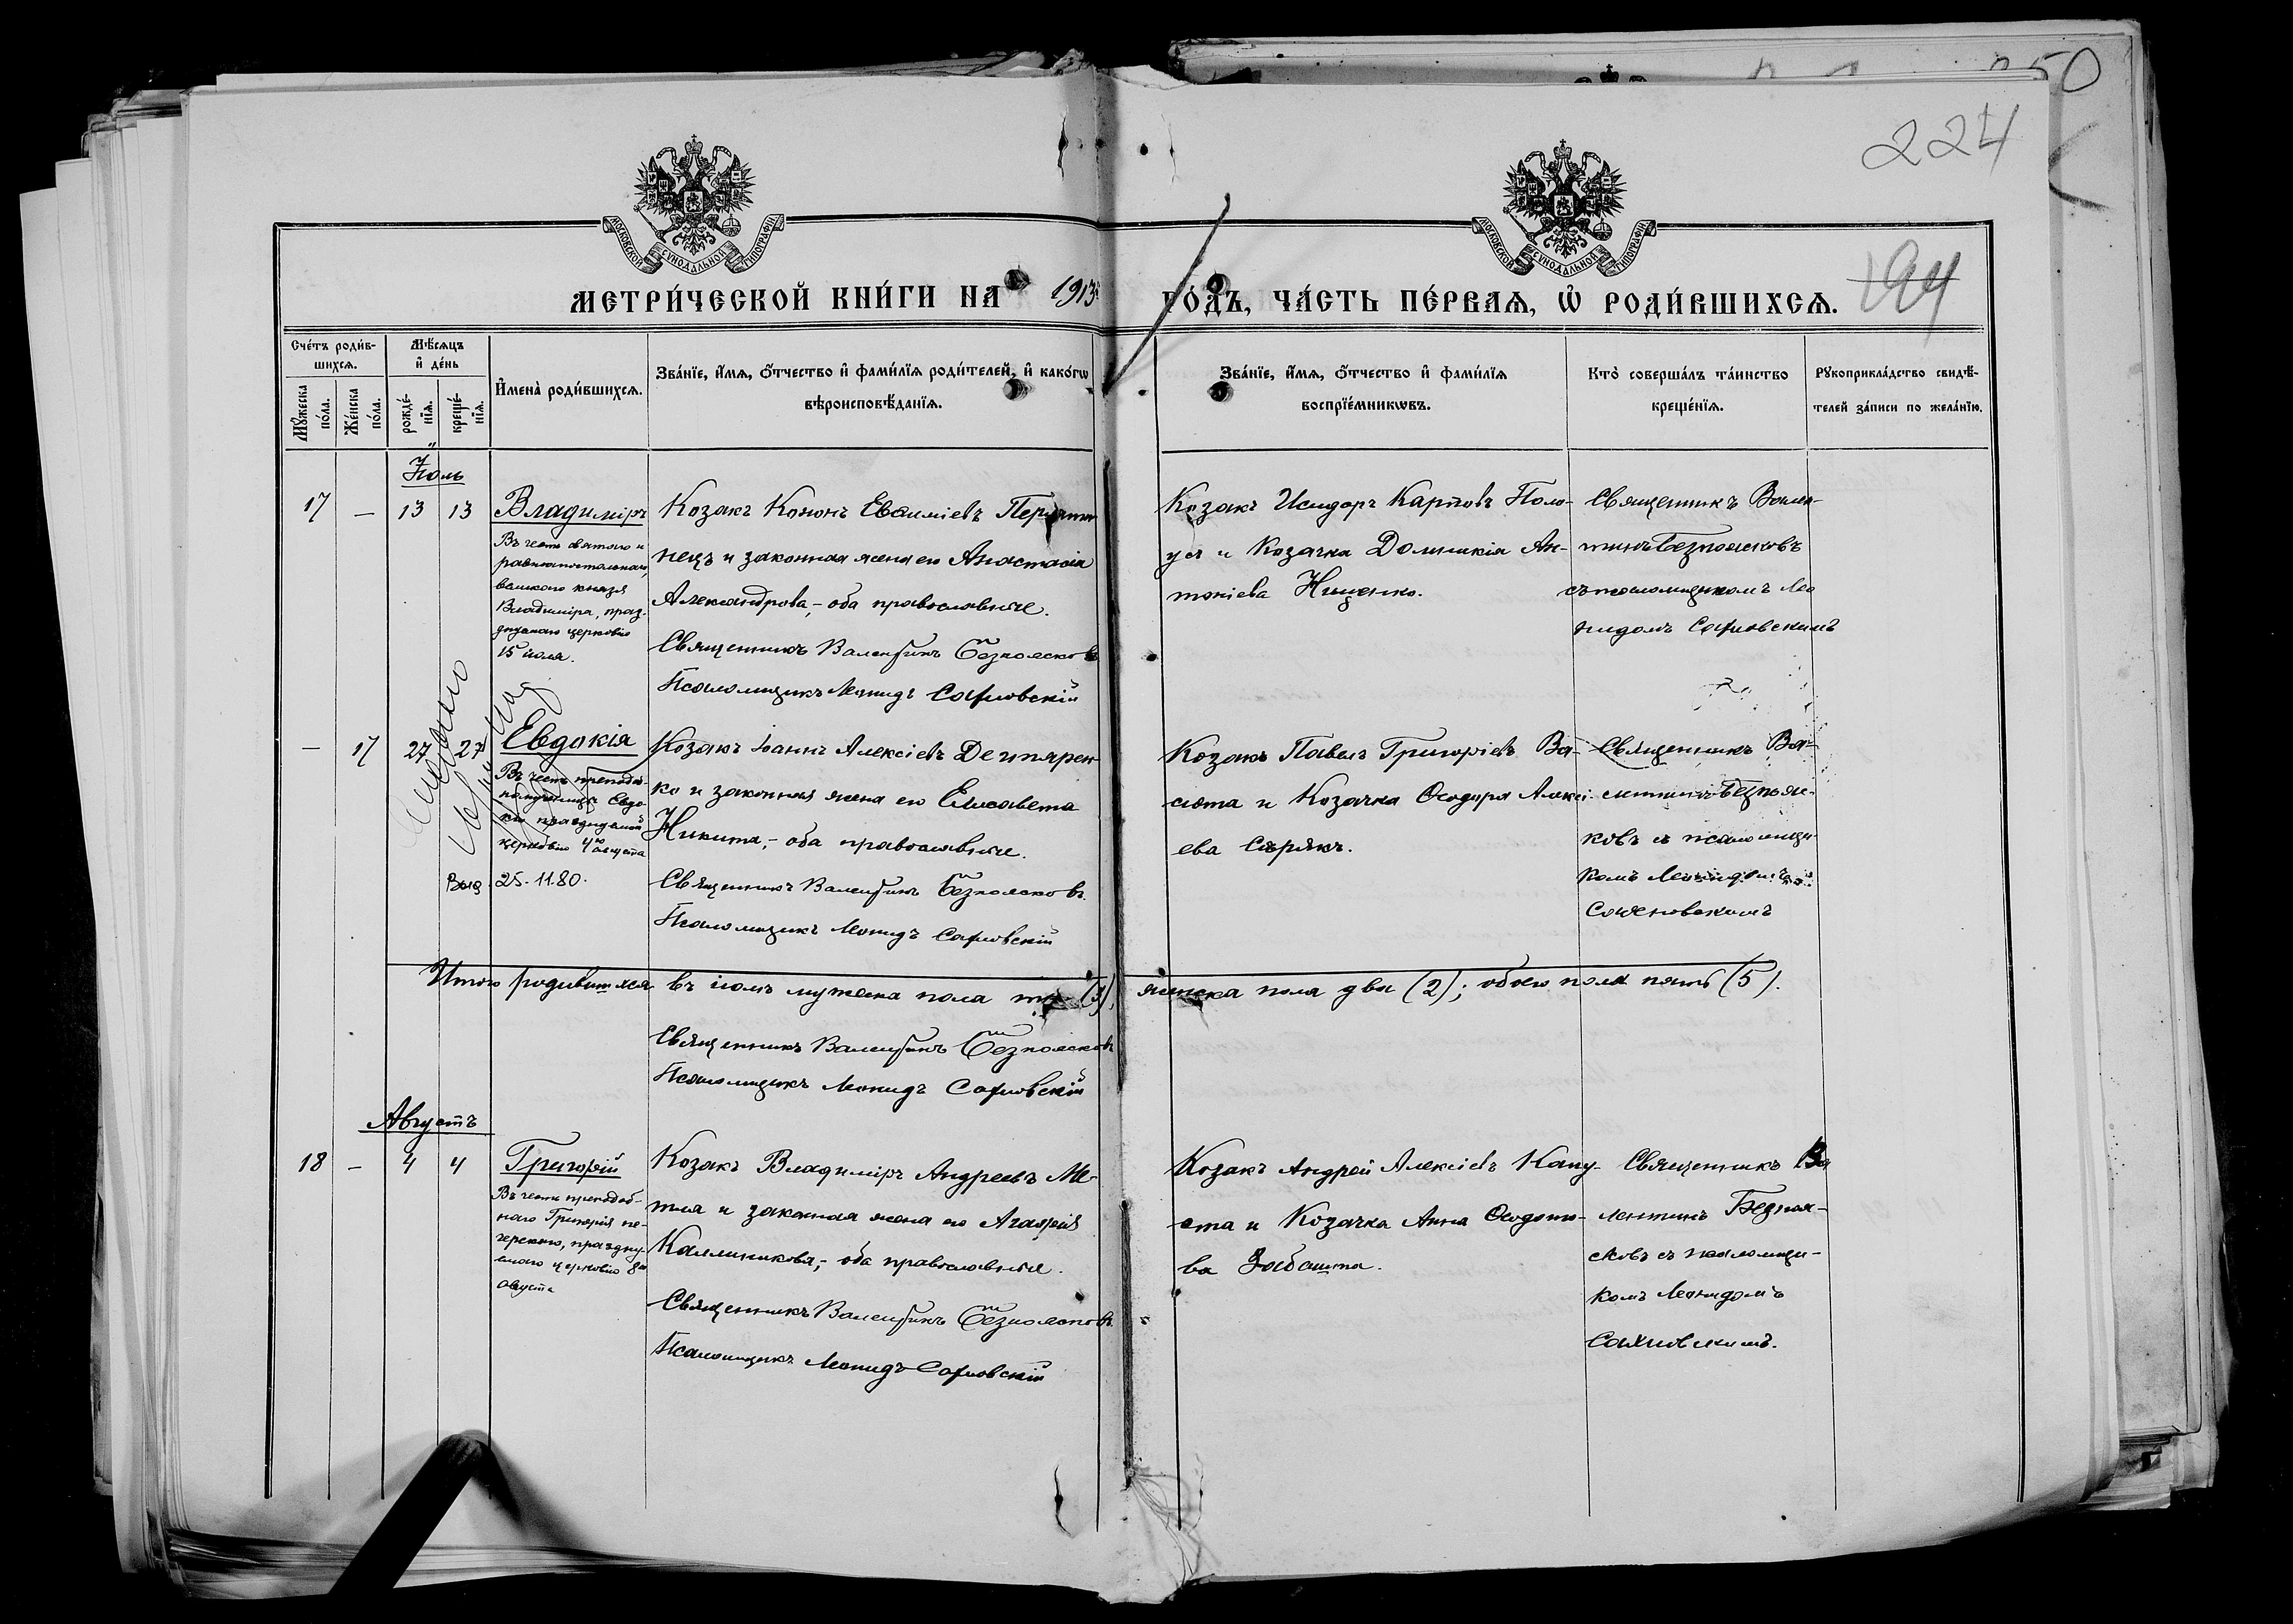 224
МОСКОВСКОЙ СѴНОДАЛЬНОЙ ТИПОГРАФІИ
МОСКОВСКОЙ СѴНОДАЛЬНОЙ ТИПОГРАФІИ
194
МЕТРИ́ЧЕСКОЙ КНИ́ГИ НА 1913 ГО́ДЪ, ЧА́СТЬ ПЕ́РВАѦ, Ѡ҆ РОДИ́ВШИХСѦ.
Сче́тъ роди́в-
шихсѧ.
Мꙋ́жеска
по́ла.
Же́нска
по́ла.
Мѣ́сѧцъ
и҆ де́нь
рожде́-
нїѧ.
креще́-
нїѧ.
И҆мена̀ роди́вшихсѧ.
Зва́нїе, и҆́мѧ, ѻ҆́тчество и҆ фами́лїѧ роди́телей, и҆ како́гѡ
вѣроисповѣ́данїѧ.
Зва́нїе, и҆́мѧ, ѻ҆́тчество и҆ фами́лїѧ
воспрїе́мникѡвъ.
Кто̀ соверша́лъ та́инство
креще́нїѧ.
Рꙋкоприкла́дство свидѣ́-
телей за́писи по жела́нїю.
Іюль
17 — 13 13
Владиміръ
Въ честь святого и
равноапостольнаго
великого князя
Владиміра, праз-
днуемаго церковію
15 іюля.
Козакъ Кононъ Евѳиміевъ
нецъ и законная жена его Анастасія
Александрова,- оба православные.
Священникъ Валентинъ Безпоясковъ
Псаломщикъ Леонидъ Сахновскій
Козакъ Исидоръ Карповъ Поло-
уст и Козачка Домникія Ан-
тоніева Нищенко.
Священникъ Вален-
тинъ Безпоясковъ
съ псаломщикомъ Лео
нидомъ Сахновскимъ
— 17 27 27
Евдокія
Въ честь преподобно-
мученицы Евдо-
кіи празднуемой
церковію 4го августа
Выд 25.11.80.
Козакъ Іоаннъ Алексіевъ Дегтярен-
ко и законная жена его Елисавета
Никитина,- оба православные.
Священникъ Валентинъ Безпоясковъ.
Псаломщикъ Леонидъ Сахновскій
Козакъ Павелъ Григоріевъ Ва-
сюта и Козачка Ѳеодора Алексі-
ева Сѣрякъ.
Священникъ Ва-
лентинъ Безпояс-
ковъ съ псаломщи-
комъ Леонидомъ
Сахновскимъ
Итого родившихся въ іюлѣ мужеска пола три (3), женска пола два (2); обоего пола пять (5).
Священникъ Валентинъ Безпоясковъ
Псаломщикъ Леонидъ Сахновскій
Августъ
18 — 4 4
Григорій
Въ честь преподоб-
наго Григорія пе-
черскаго, праздну-
емаго церковію 8го
августа
Козакъ Владиміръ Андреевъ Ме-
тла и законная жена его Агафія
Каллиникова,- оба православные.
Священникъ Валентинъ Безпоясковъ.
Псаломщикъ Леонидъ Сахновскій
Козакъ Андрей Алексіевъ Капу-
ста и Козачка Анна Ѳеодото-
ва Забашта.
Священникъ Ва
лентинъ Безпоя-
сковъ съ псаломщи-
комъ Леонидомъ
Сахновскимъ.